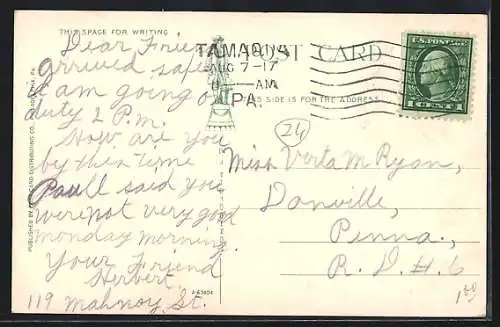 THIS SPACE FOR WRITING
Dear Friend
arrived safe
I am going on
duty 2 P.m.
How are you
by this time
Paull said you
were not very good
monday morning.
Your Friend
Herbert
119 Mahnoy St.
TAMAQUA
AUG 7-17
AM
PA.
POST CARD
THIS SIDE IS FOR THE ADDRESS
U.S. POSTAGE
1 CENT 1
24
Miss Verta M Ryan,
Danville,
Penna,
R. D. #. 6
PUBLISHED BY
AND DISTRIBUTING CO.